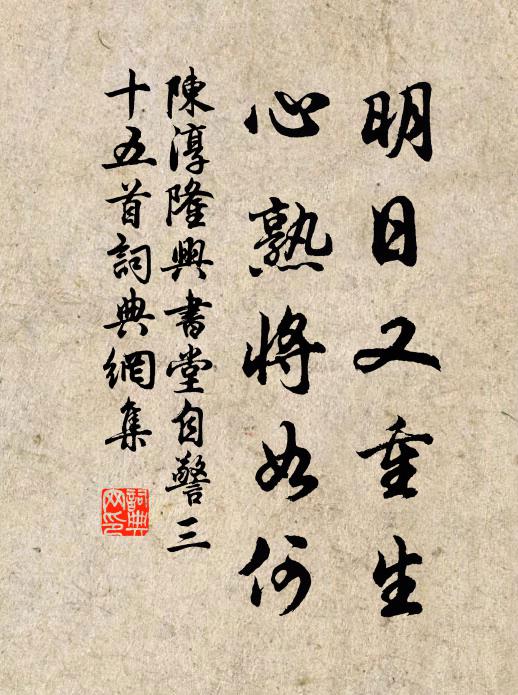 明日又重生
心熟將如何
陳淳隆興書堂自警三
十五首詞典網集
詞典
网印